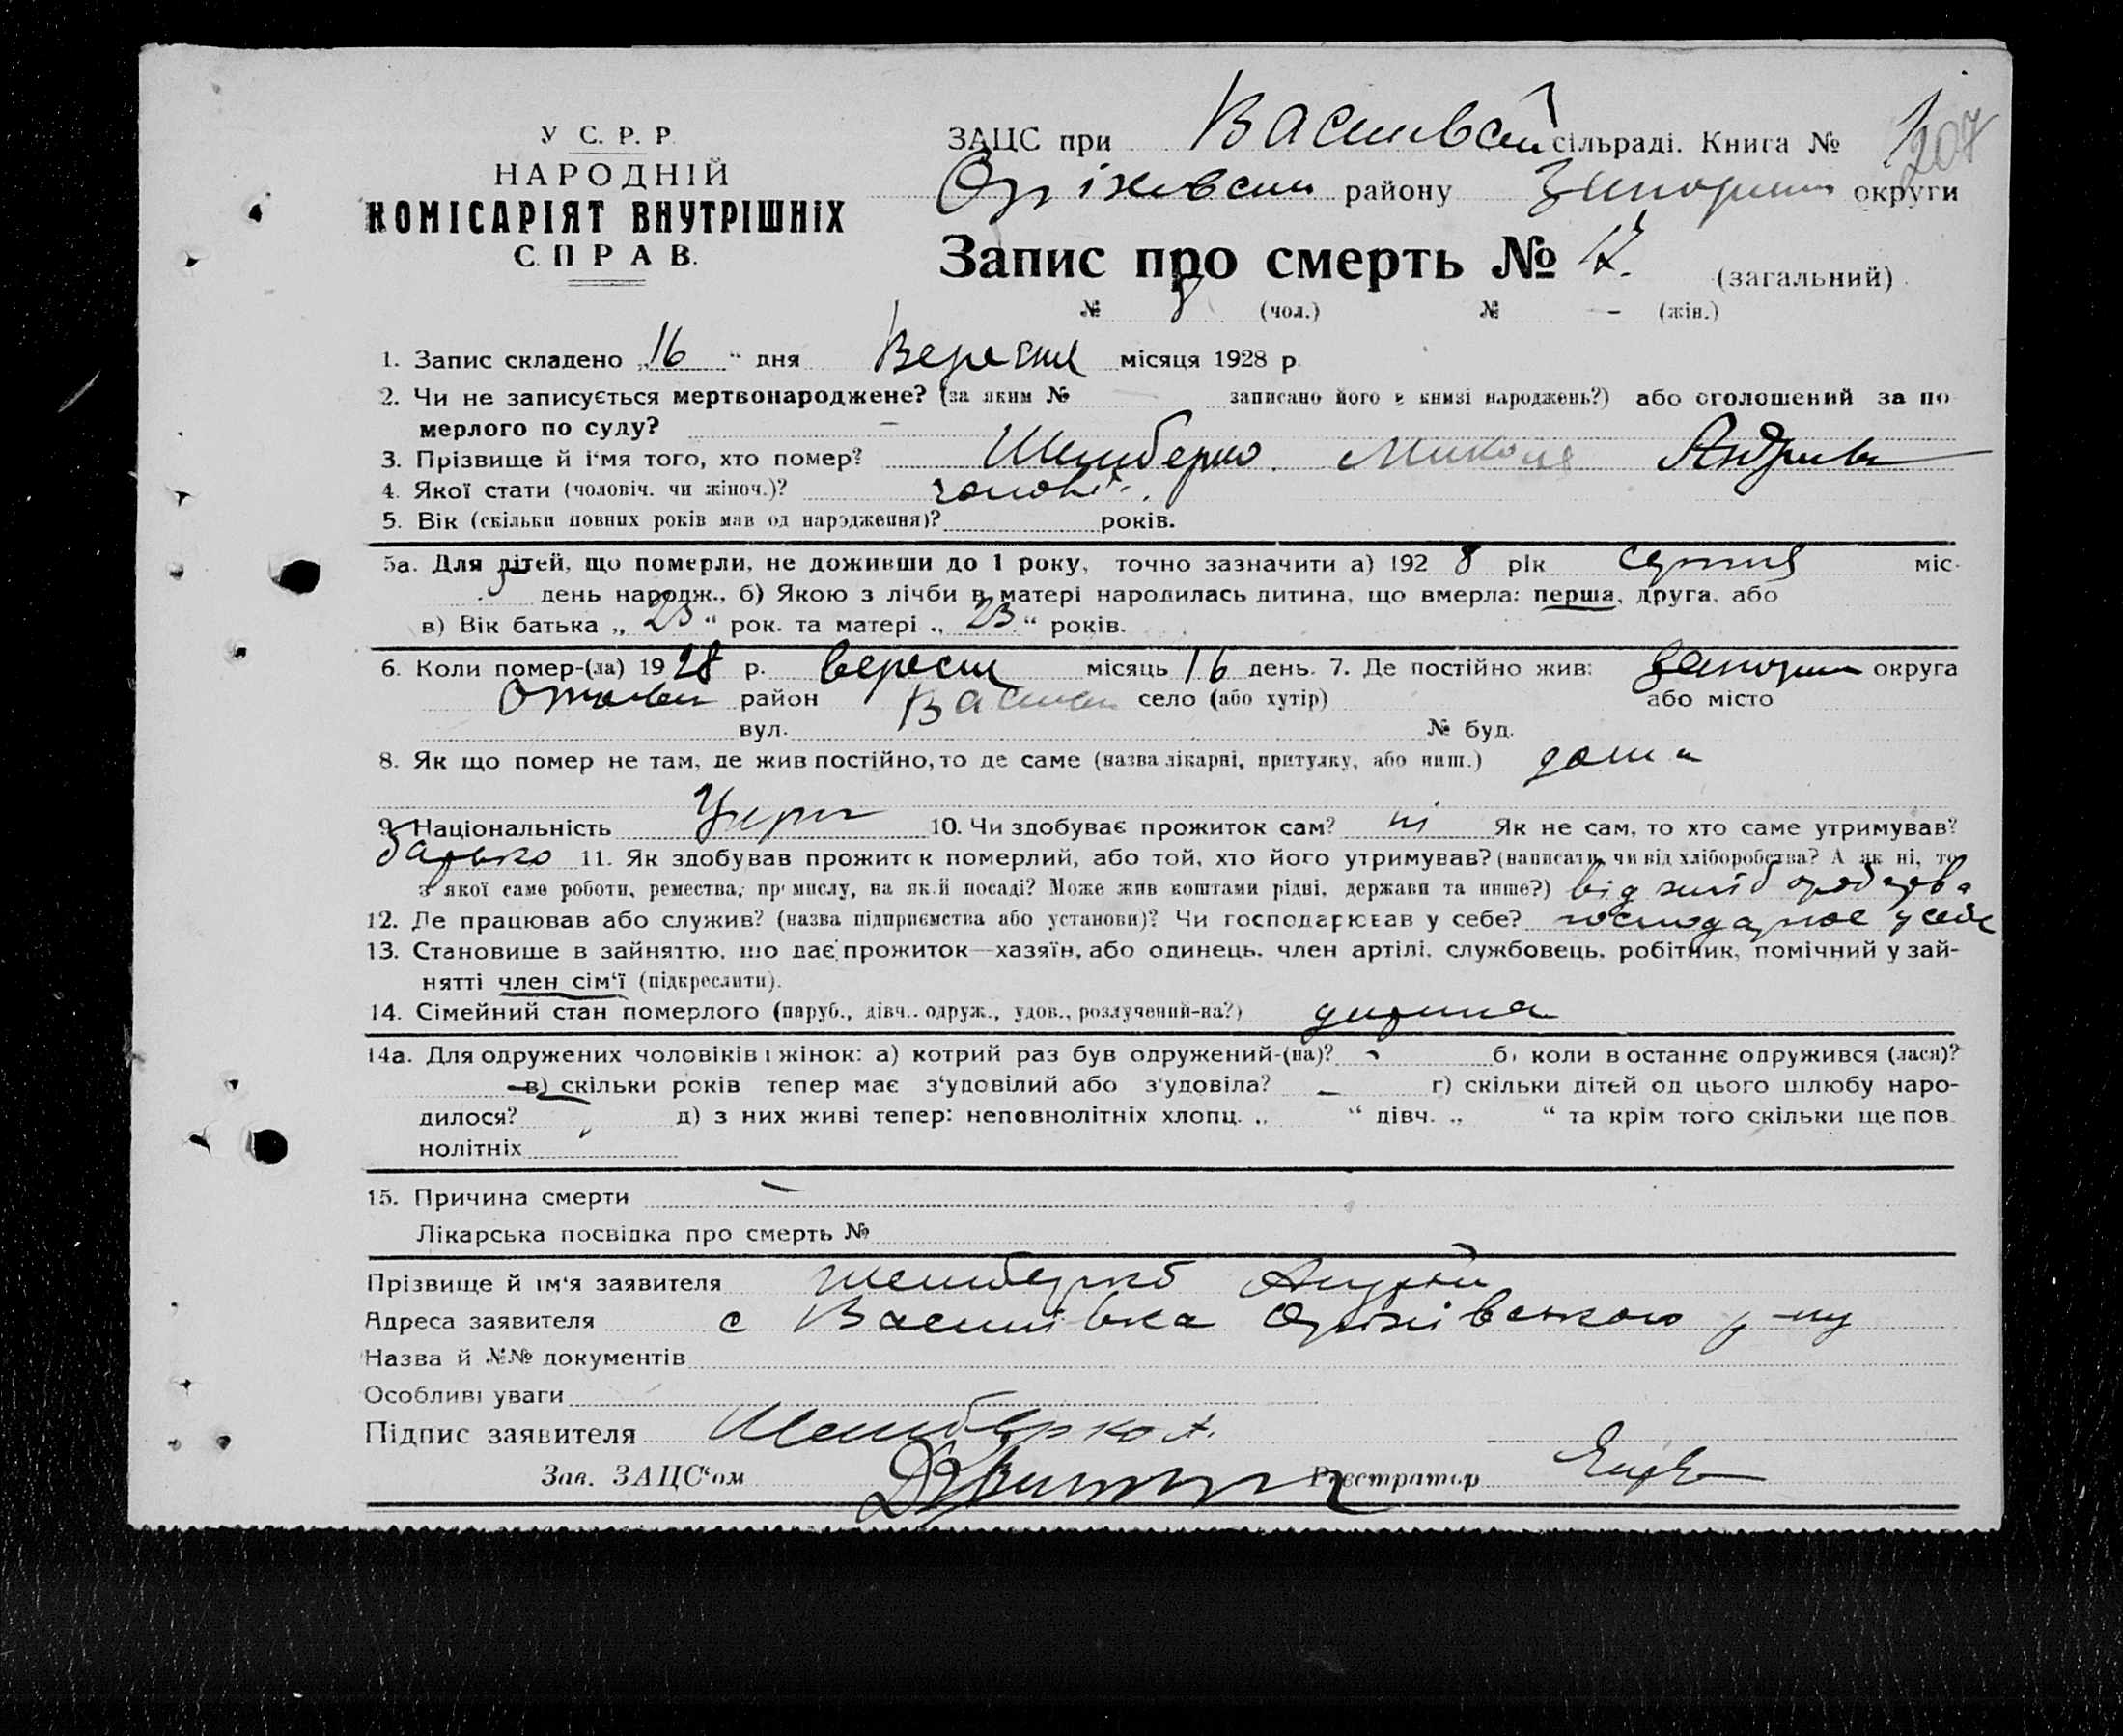 У С. Р. Р.
НАРОДНІЙ
КОМІСАРІЯТ ВНУТРІШНІХ
СПРАВ.
ЗАЦС при сільраді. Книга № 1 207
району округи
Запис про смерть № 17. (загальний)
№ (чол.) № – (жін.)
1. Запис складено „16“ дня Вересня місяця 1928 р.
2. Чи не записується мертвонароджене? (за яким № записано його в книзі народжень?) або оголошений за по
мерлого по суду? –
3. Прізвище й і'мя того, хто помер? Микола
4. Якої стати (чоловіч. чи жіноч.)?
5. Вік (скільки повних років мав од народження)? років.
5а. Для дітей, що померли, не доживши до 1 року, точно зазначити а) 1928 рік серпня міс.
день народж., б) Якою з лічби в матері народилась дитина, що вмерла: перша, друга, або
в) Вік батька „23“ рок. та матері „23“ років.
6. Коли помер-(ла) 1928 р. вересня місяць 16 день. 7. Де постійно жив: округа
район село (або хутір) або місто
вул. № буд.
8. Як що помер не там, де жив постійно, то де саме (назва лікарні, притулку, або инш.) дома
9. Національність Укр 10. Чи здобуває прожиток сам? ні Як не сам, то хто саме утримував?
батько 11. Як здобував прожиток померлий, або той, хто його утримував? (написати, чи від хліборобства? А як ні, то
з якої саме роботи, ремества, промислу, на якій посаді? Може жив коштами рідні, держави та инше?) від хліборобства
12. Де працював або служив? (назва підприємства або установи)? Чи господарював у себе? господарює у себе
13. Становище в зайняттю, що дає прожиток—хазяїн, або одинець, член артілі, службовець, робітник, помічний у зай-
нятті член сім'ї (підкреслити).
14. Сімейний стан померлого (паруб., дівч., одруж., удов., розлучений-на?) дитина
14а. Для одружених чоловіків і жінок: а) котрий раз був одружений-(на)? б) коли востаннє одружився (лася)?
в) скільки років тепер має з'удовілий або з'удовіла? – г) скільки дітей од цього шлюбу наро-
дилося? д) з них живі тепер: неповнолітніх хлопц. „ “ дівч. „ “ та крім того скільки ще пов
нолітніх
15. Причина смерти –
Лікарська посвідка про смерть №
Прізвище й ім'я заявителя Андрій
Адреса заявителя с Василівка Оріхівського р-ну
Назва й №№ документів
Особливі уваги
Підпис заявителя
Зав. ЗАЦС'ом Реєстратор